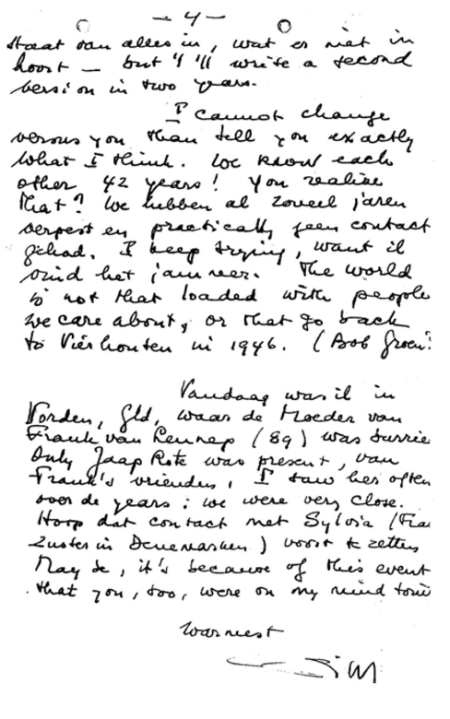 - 4 -
Staat van alles in, wat er niet in
hoort — but I'll write a second
version in two years.
I cannot change
versus you than tell you exactly
what I think. We know each
other 42 years! You realize
that? We hebben al zoveel jaren
verpest en practically geen contact
gehad. I keep trying, want ik
vind het jammer. The world
is not that loaded with people
we care about, or that go back
to Vierhouten in 1946. (Bob Groen?
Vandaag was ik in
Vorden, Gld, waar de Moeder van
Frank van Lennep (89) was burried
Only Jaap Rote was present, van
Frank's vrienden, I saw her often
over de years: we were very close.
Hoop dat contact met Sylvia (Fra
zuster in Denemarken) voort te zetten
May be, it's because of this event
that you, too, were on my mind
warmest